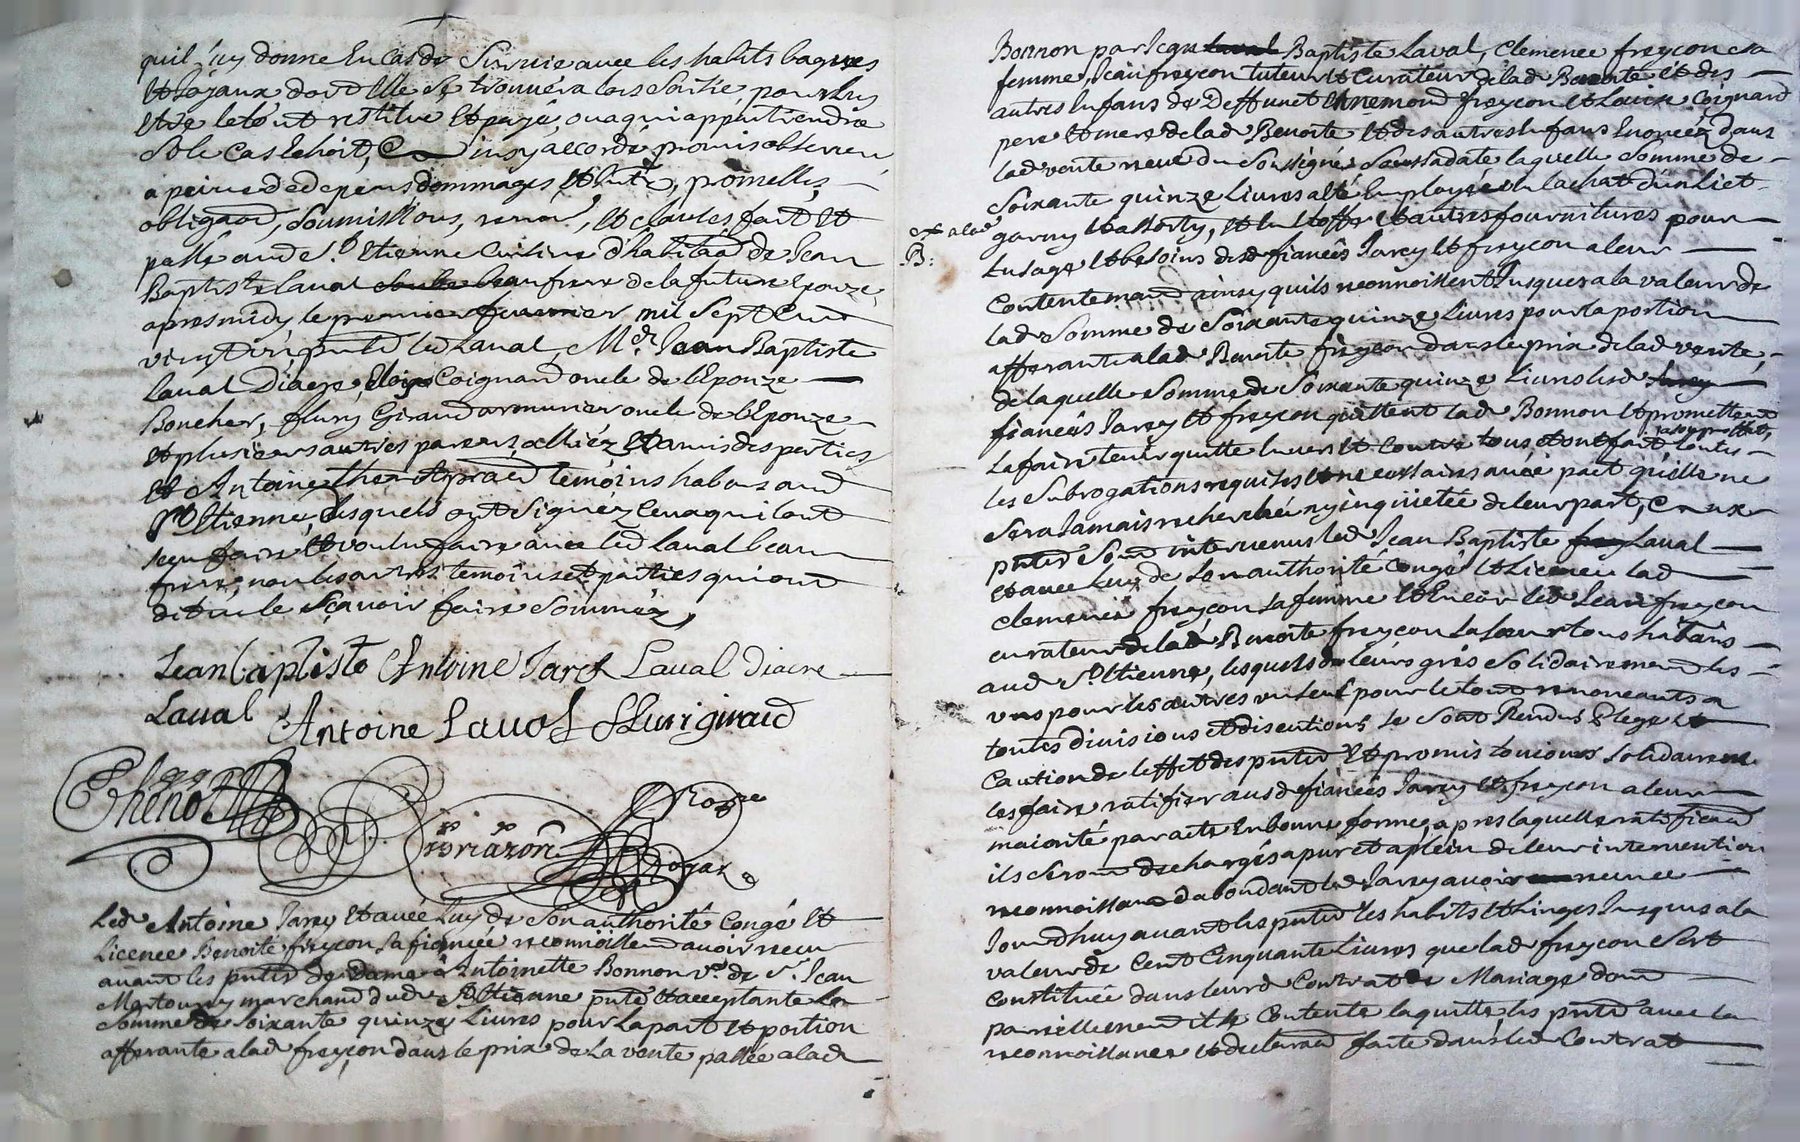 quil luy donne En cas de Survie avec les habits bagues
Et Joyaux dont Elle se trouvera lors Saisie, pour luy
Etre le tout restitué Et payé, ou a qui appartiendra
Sy le cas Echoit, Car insy accordé, promis observer
a peine de depens dommages Et intz, promesses,
obligaon, Soumissions, renon, Et clauses fait Et
passé aud St Etienne Domicille d'habitaon de Jean
Baptiste Laval beaufrere de la future Epouze,
apres midy, le premier fevrier mil Sept Cent
vingt pntz led Laval, Mre Jean Baptiste
Laval Diacre, Eloys Coignard oncle de l'Epouze
Boucher, fleury Giraud armurier oncle de l'Epouze
Et plusieurs autres parens, alliéz Et amis des parties
Et Antoine Thenot prat temoins habitans aud
St Etienne, lesquels ont Signéz Ceux qui l'ont
Sceu faire Et voulu faire avec led Laval beau
frere, non les autres temoins et parties qui ont
dit ne le Sçavoir faire Sommez,
Jean baptiste Antoine Jarey Laval Diacre
Laval Antoine Lavol fleurigiraud
Thenot
Rozier
Led Antoine Jarey Et avec Luy de Son authorité Congé Et
Licence Benoite freycon Sa fiancée reconnoissent avoir receu
avant les pntes de dame Antoinette Bonnon ve de Sr Jean
Montouroy marchand dud St Etienne pnte Et acceptante La
Somme de Soixante quinze Livres pour La part Et portion
afferante a lad freycon dans le prix de La vente passée a lad
Bonnon par Jean Baptiste Laval, Clemence freycon Sa
femme, Jean freycon tuteur Et Curateur de lad Benoite Et des
autres Enfans de Deffunct Ennemond freycon Et Louise Coignard
pere Et mere de lad Benoite Et des autres Enfans Enoncéz dans
lad vente receue du Soussigné Sous Sa date laquelle Somme de
Soixante quinze Livres a été Employée En l'achat d'un Liet
garny Et assorty, Et En Etoffe Et autres fournitures pour
Lusage Et besoins desd fiancés Jarey Et freycon a leur
Contentement ainsy quils reconnoissent Jusques a la valeur de
lad Somme de Soixante quinze Livres pour la portion
afferante a lad Benoite freycon dans le prix de lad vente,
de laquelle Somme de Soixante quinze Livres lesd
fiancés Jarey Et freycon quittent lad Bonnon Et promettent
La faire tenir quitte Envers Et Contre tous Et ont fait toutes
les Subrogations requises Et necessaires avec pact quelle ne
Sera Jamais recherchée ny inquiettée de leur part, Et aux
pntes Sont intervenus led Jean Baptiste Laval
Et avec Luy de Son authorité Congé Et Licence lad
Clemence freycon Sa femme Et Encor led Jean freycon
curateur de lad Benoite freycon Sa Soeur tous habitans
aud St Etienne, lesquels de leurs grés Solidairement les
uns pour les autres un seul pour le tout renonceants a
toutes divisions et discutions, Se Sont Rendus Pleges Et
Caution de l'effet des pntes Et promis toujours Solidairement
les faire ratifier ausd fiancés Jarey Et freycon a leur
majorité par acte En bonne forme, apres laquelle ratificaon
ils Seront dechargés a pur et a plein de leur intervention
reconnoissant dabondant led Jarey avoir receu ce
Jourdhuy avant les pntes les habits Et linges Jusques a la
valeur de Cent Cinquante Livres que lad freycon S'est
Constituée dans leurd Contrat de Mariage dont
pareillement il Se Contente laquitte, les pntes avec la
reconnoissance Et declaraon faite dans led Contrat